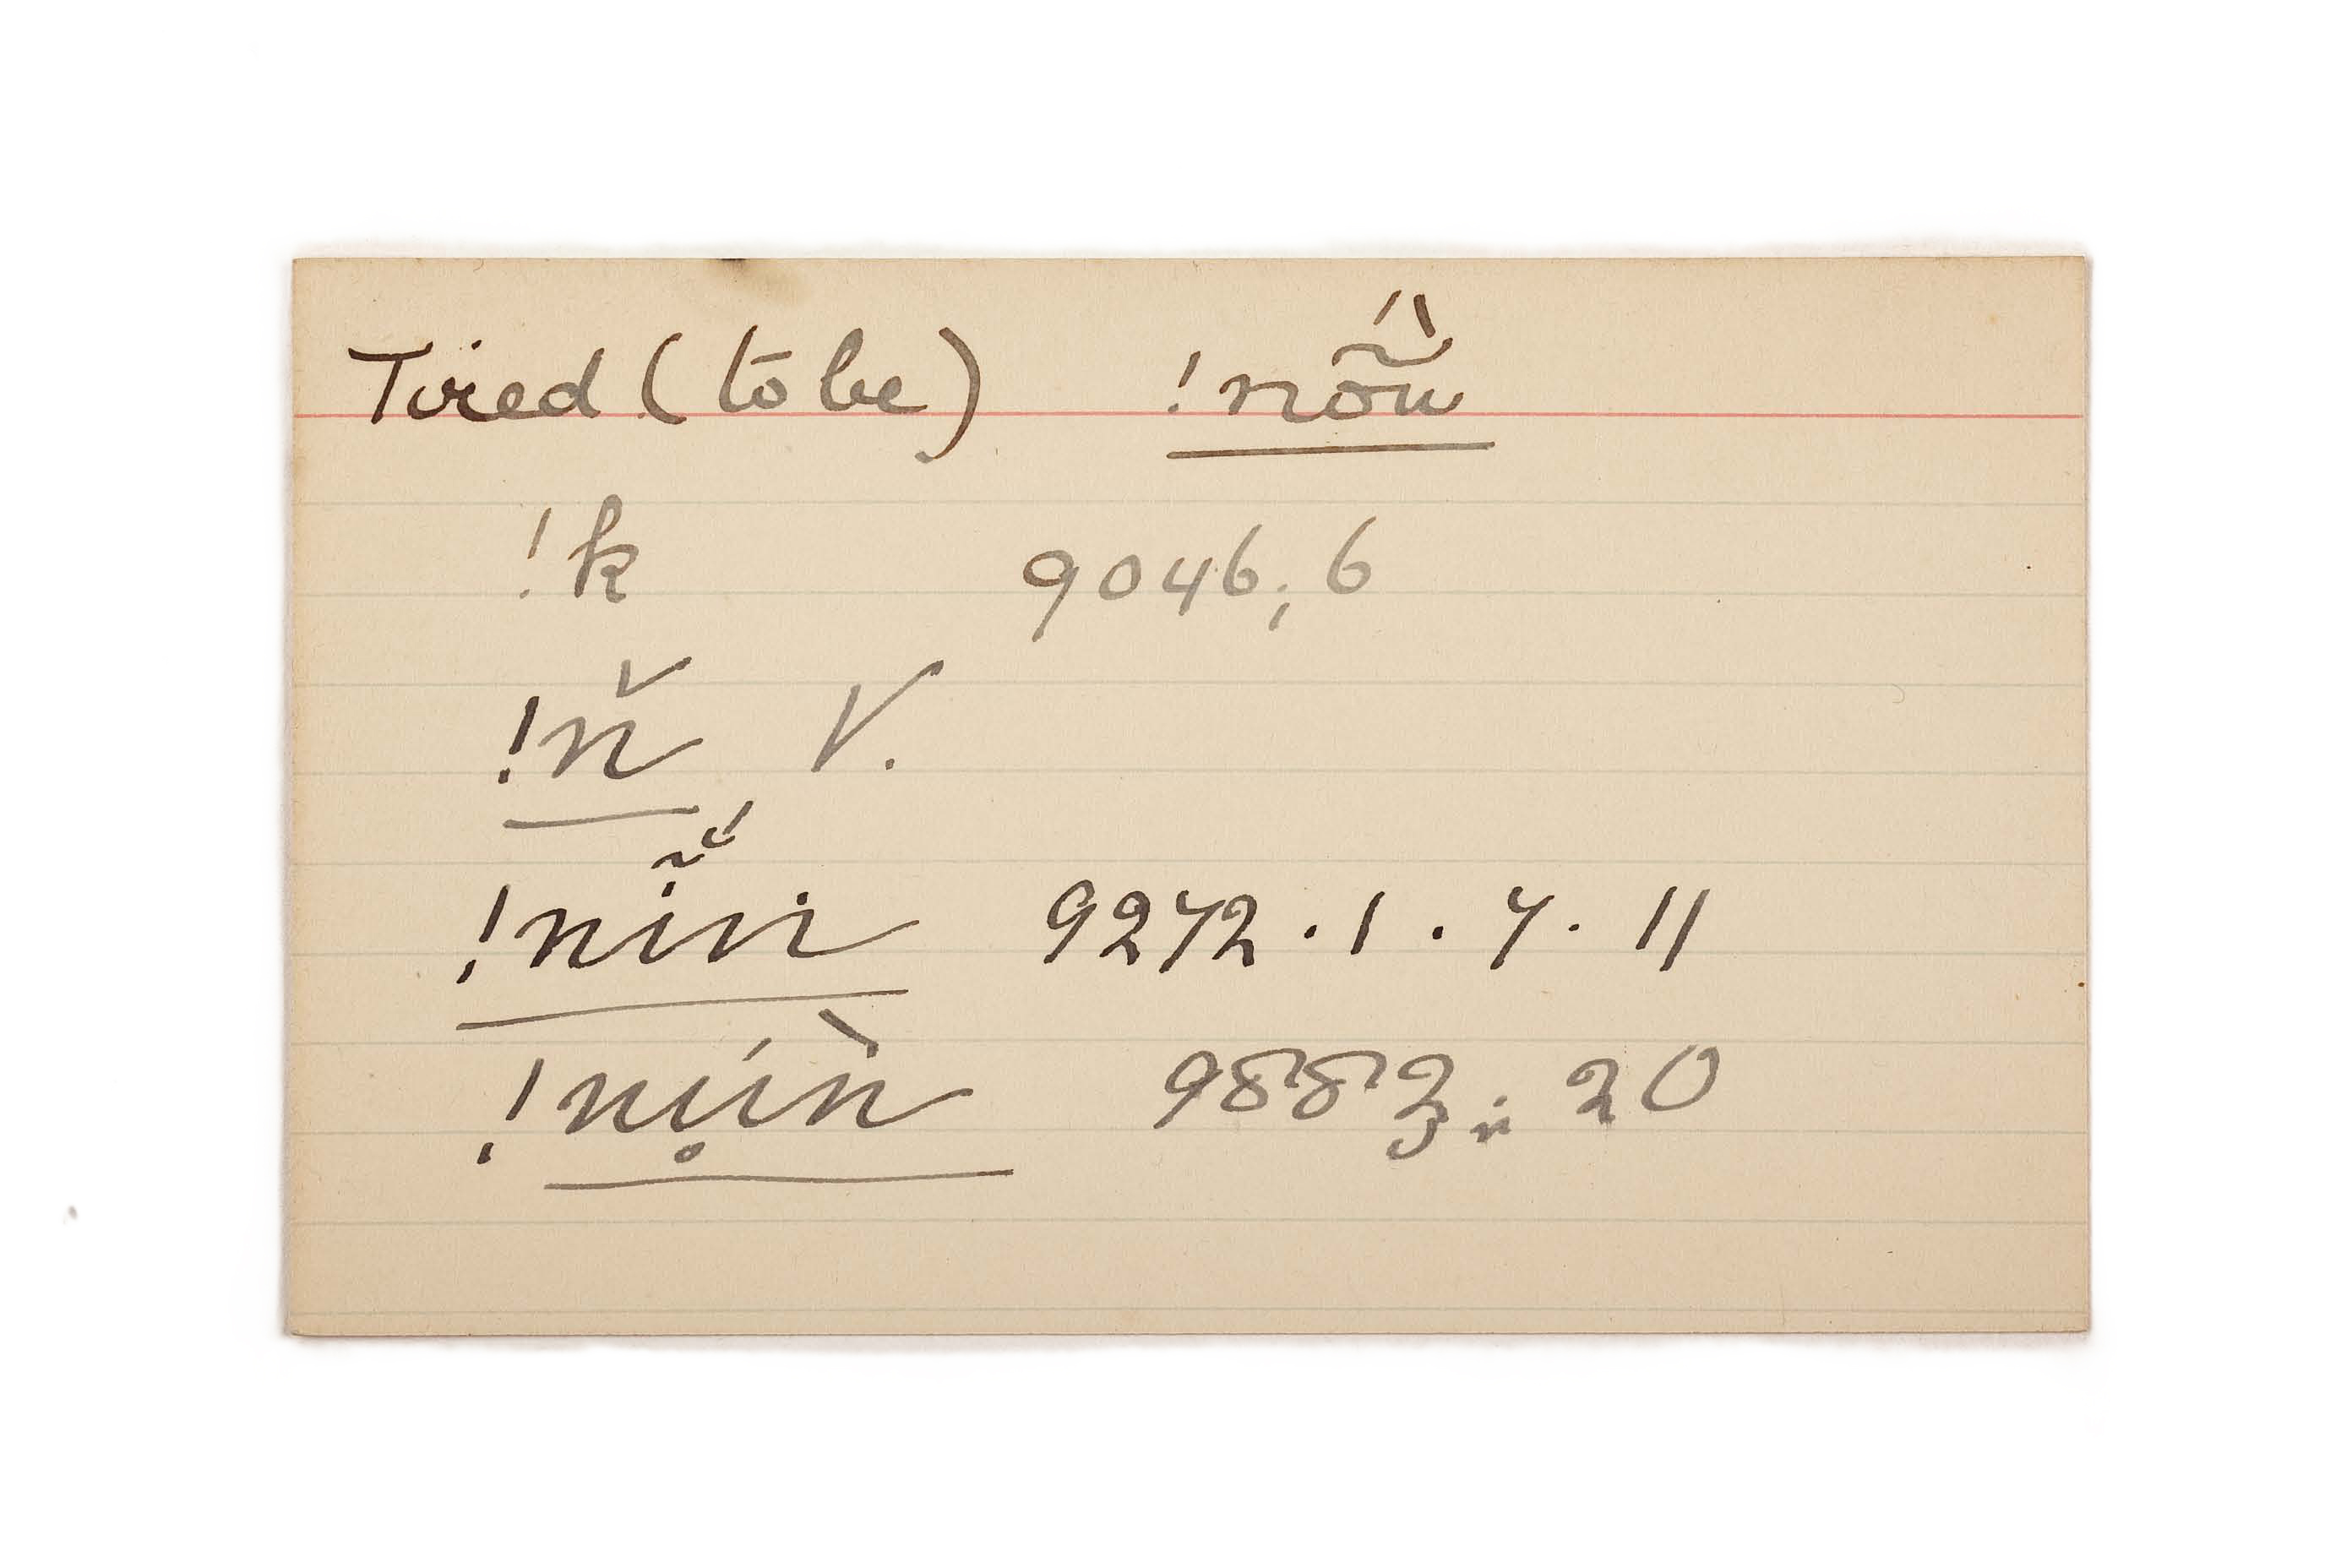 Tired (to be) !nõú̀
!k 9046; 6
!ň V.
!nĩń 9272 . 1 . 7 . 11
!nu̥íǹ 9883; 20